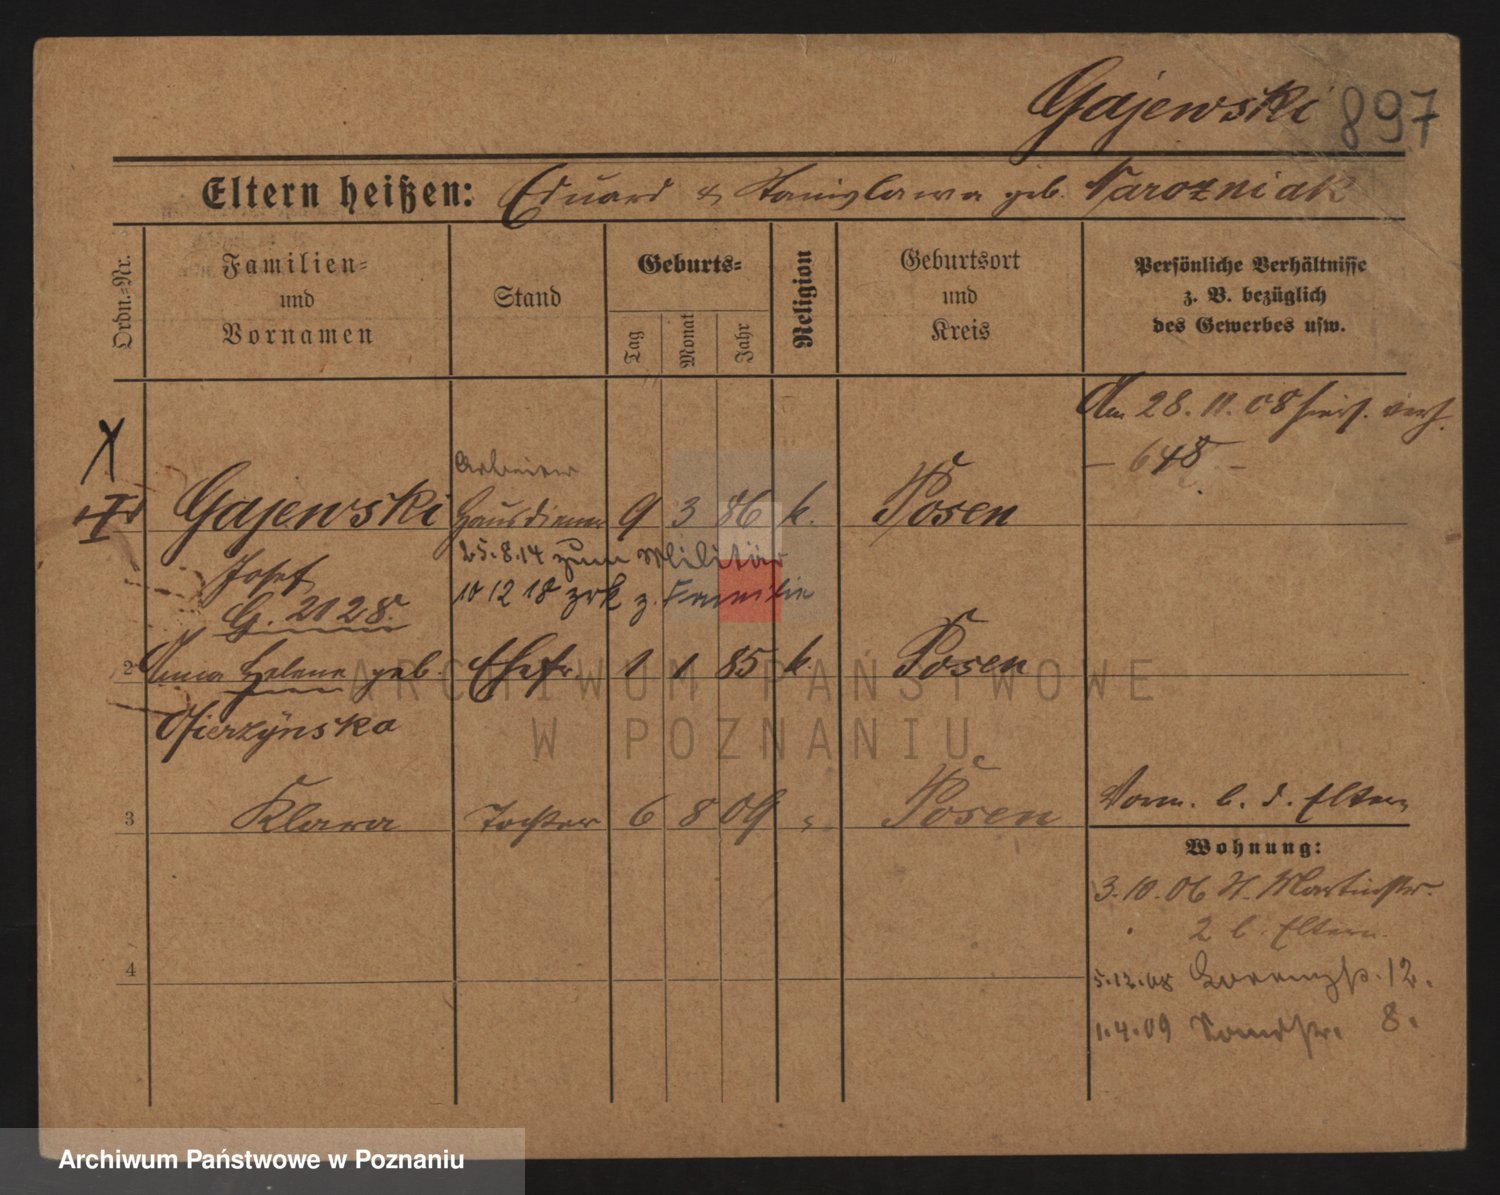 Gajewski 897
Eltern heißen: Eduard & Stanislawa geb. Narozniak
Ordn.-Nr.
Familien-
und
Vornamen
Stand
Geburts-
Tag
Monat
Jahr
Religion
Geburtsort
und
Kreis
Persönliche Verhältnisse
z. B. bezüglich
des Gewerbes usw.
Am 28. 11. 08 hier. verh.
– 648 –
Arbeiter
Gajewski Hausdiener 9 3 86 k. Posen
25.8.14 zum Militär
Josef
10 12 18 zrk z. Familie
G. 2028.
2 Anna Helene geb. Ehefr. 1 1 85 k. Posen
ARCHIWUM PAŃSTWOWE
W POZNANIU
3 Klara Tochter 6 8 09 Posen
Vorm. b. d. Eltern
Wohnung:
3.10.06 St. Martinstr.
2 b. Eltern.
4
5.12.08 12.
1.4.09 8.
Archiwum Państwowe w Poznaniu